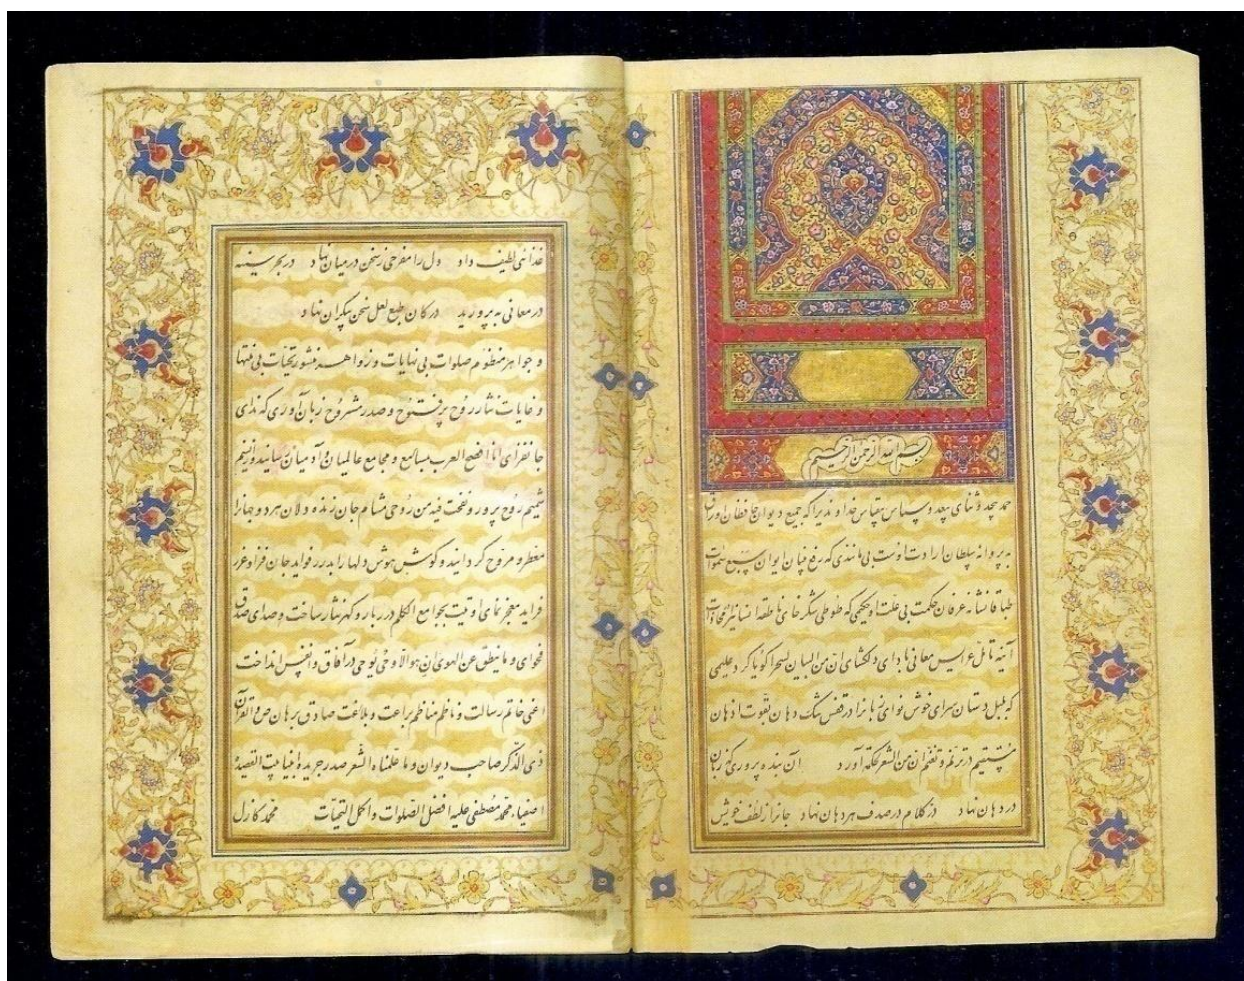 بسم الله الرحمن الرحیم
حمد بیحد و ثنای بیعد و سپاس بیقیاس خداوندیرا که جمیع دیوان حافظان ارزاق
به پروانه سلطان ارادت اوست بی مانندی که رفع بنیان ایوان سبع سموات
طباقا نشانه عرفان حکمت بی علت او حکیمی که طوطی شکر خای ناطقه انسانیرا در محاذات
آینه تامل عرایس معانی بادای دلکشای ان من البیان لسحرا گویا کرد علیمی
که بلبل دستان سرای خوش نوای زبانرا در قفس تنک دهان بقوت اذهان
مستقیم در ترنم و تنغم ان من الشعر لحکمه آورد آن بنده پروری کز زبان
در دهان نهاد در کلام در صدف هر دهان نهاد جانرا ز لطف خویش
غذائی لطیف داد ول را مفرحی ز سخن در میان نهاد در بحر سینه
در معانی به پرورید در کان طبع لعل سخن بیکران نهاد
و جواهر منظوم صلوات بی نهایات و زواهر منثور تحیات بی منتها
و غایات نثار روح پر فتوح و صدر مشروح زبان آوری که ندای
جانفزای انا افصح العرب بمسامع و مجامع عالمیان و آدمیان رسانید و نسیم
شمیم روح پرور و نفخت فیه من روحی مشام جان زنده دلان هر دو جهانرا
معطر و مروح گردانید و گوش هوش دلها را بدرر فواید جان فزا و غرر
فراید معجز نمای اوتیت بجوامع الکلم درربار و گهر نثار ساخت و صدای صدق
فحوای و ما ینطق عن الهوی ان هو الا وحی یوحی در آفاق و انفس انداخت
اعنی خاتم رسالت و ناظم مناظم براعت و بلاغت صادق برهان ص والقرآن
ذی الذکر صاحب دیوان و ما علمناه الشعر صدر جریده انبیا بیت القصیده
اصفیاء محمد مصطفی علیه افضل الصلوات و اکمل التحیات محمد کازل